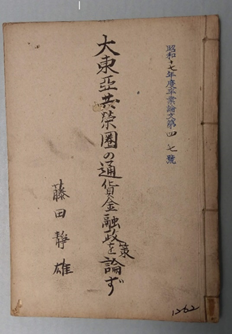 昭和十七年度卒業論文第四七號
大東亞共榮圏の通貨金融政策を論ず
藤田靜雄
1262